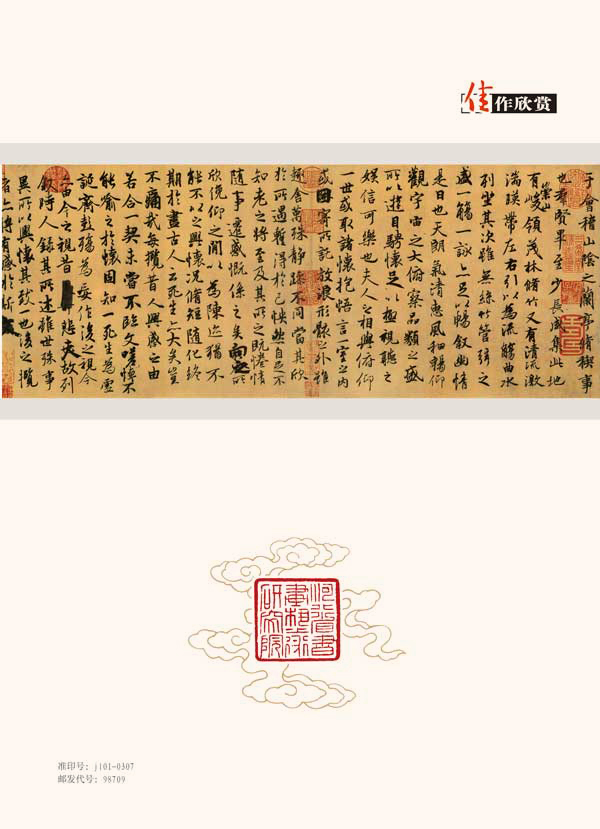 佳作欣赏
于會稽山陰之蘭亭脩稧事
也羣賢畢至少長咸集此地
有崇山峻領茂林脩竹又有清流激
湍暎帶左右引以為流觴曲水
列坐其次雖無絲竹管弦之
盛一觴一詠亦足以暢敘幽情
是日也天朗氣清惠風和暢仰
觀宇宙之大俯察品類之盛
所以遊目騁懷足以極視聽之
娛信可樂也夫人之相與俯仰
一世或取諸懷抱悟言一室之內
或因寄所託放浪形骸之外雖
趣舍萬殊靜躁不同當其欣
於所遇暫得於己怏然自足不
知老之將至及其所之既惓情
隨事遷感慨係之矣向之所
欣俛仰之間以為陳迹猶不
能不以之興懷況脩短隨化終
期於盡古人云死生亦大矣豈
不痛哉每攬昔人興感之由
若合一契未嘗不臨文嗟悼不
能喻之於懷固知一死生為虛
誕齊彭殤為妄作後之視今
亦由今之視昔悲夫故列
敘時人錄其所述雖世殊事
異所以興懷其致一也後之攬
者亦將有感於斯
書畫藝術研究院
准印号: j101-0307
邮发代号: 98709